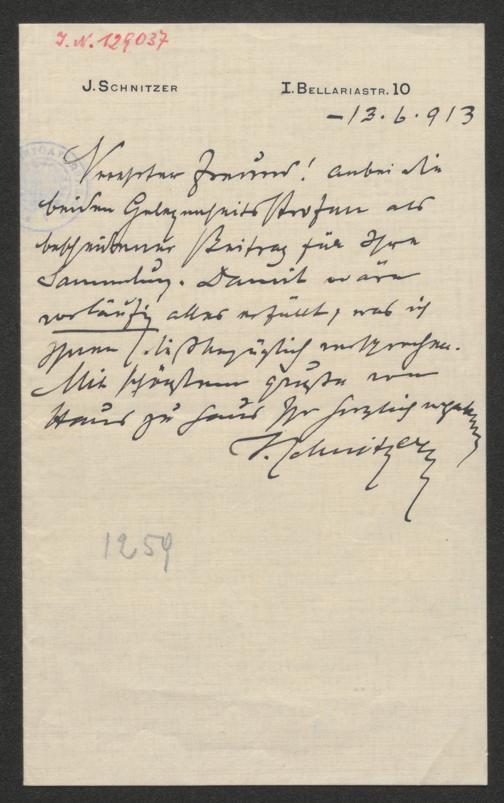 I. N. 129037
J. SCHNITZER
I. BELLARIASTR. 10
-13.6.913
Verehrter Freund! anbei die
beiden Gelegenheitsstrofen als
bescheidener Beitrag für Ihre
Sammlung. Damit wäre
vorläufig alles erfüllt, was ich
Ihnen diesbezüglich versprochen.
Mit schönstem Gruße von
Haus zu Haus Ihr herzlich ergebener
J. Schnitzer
1259